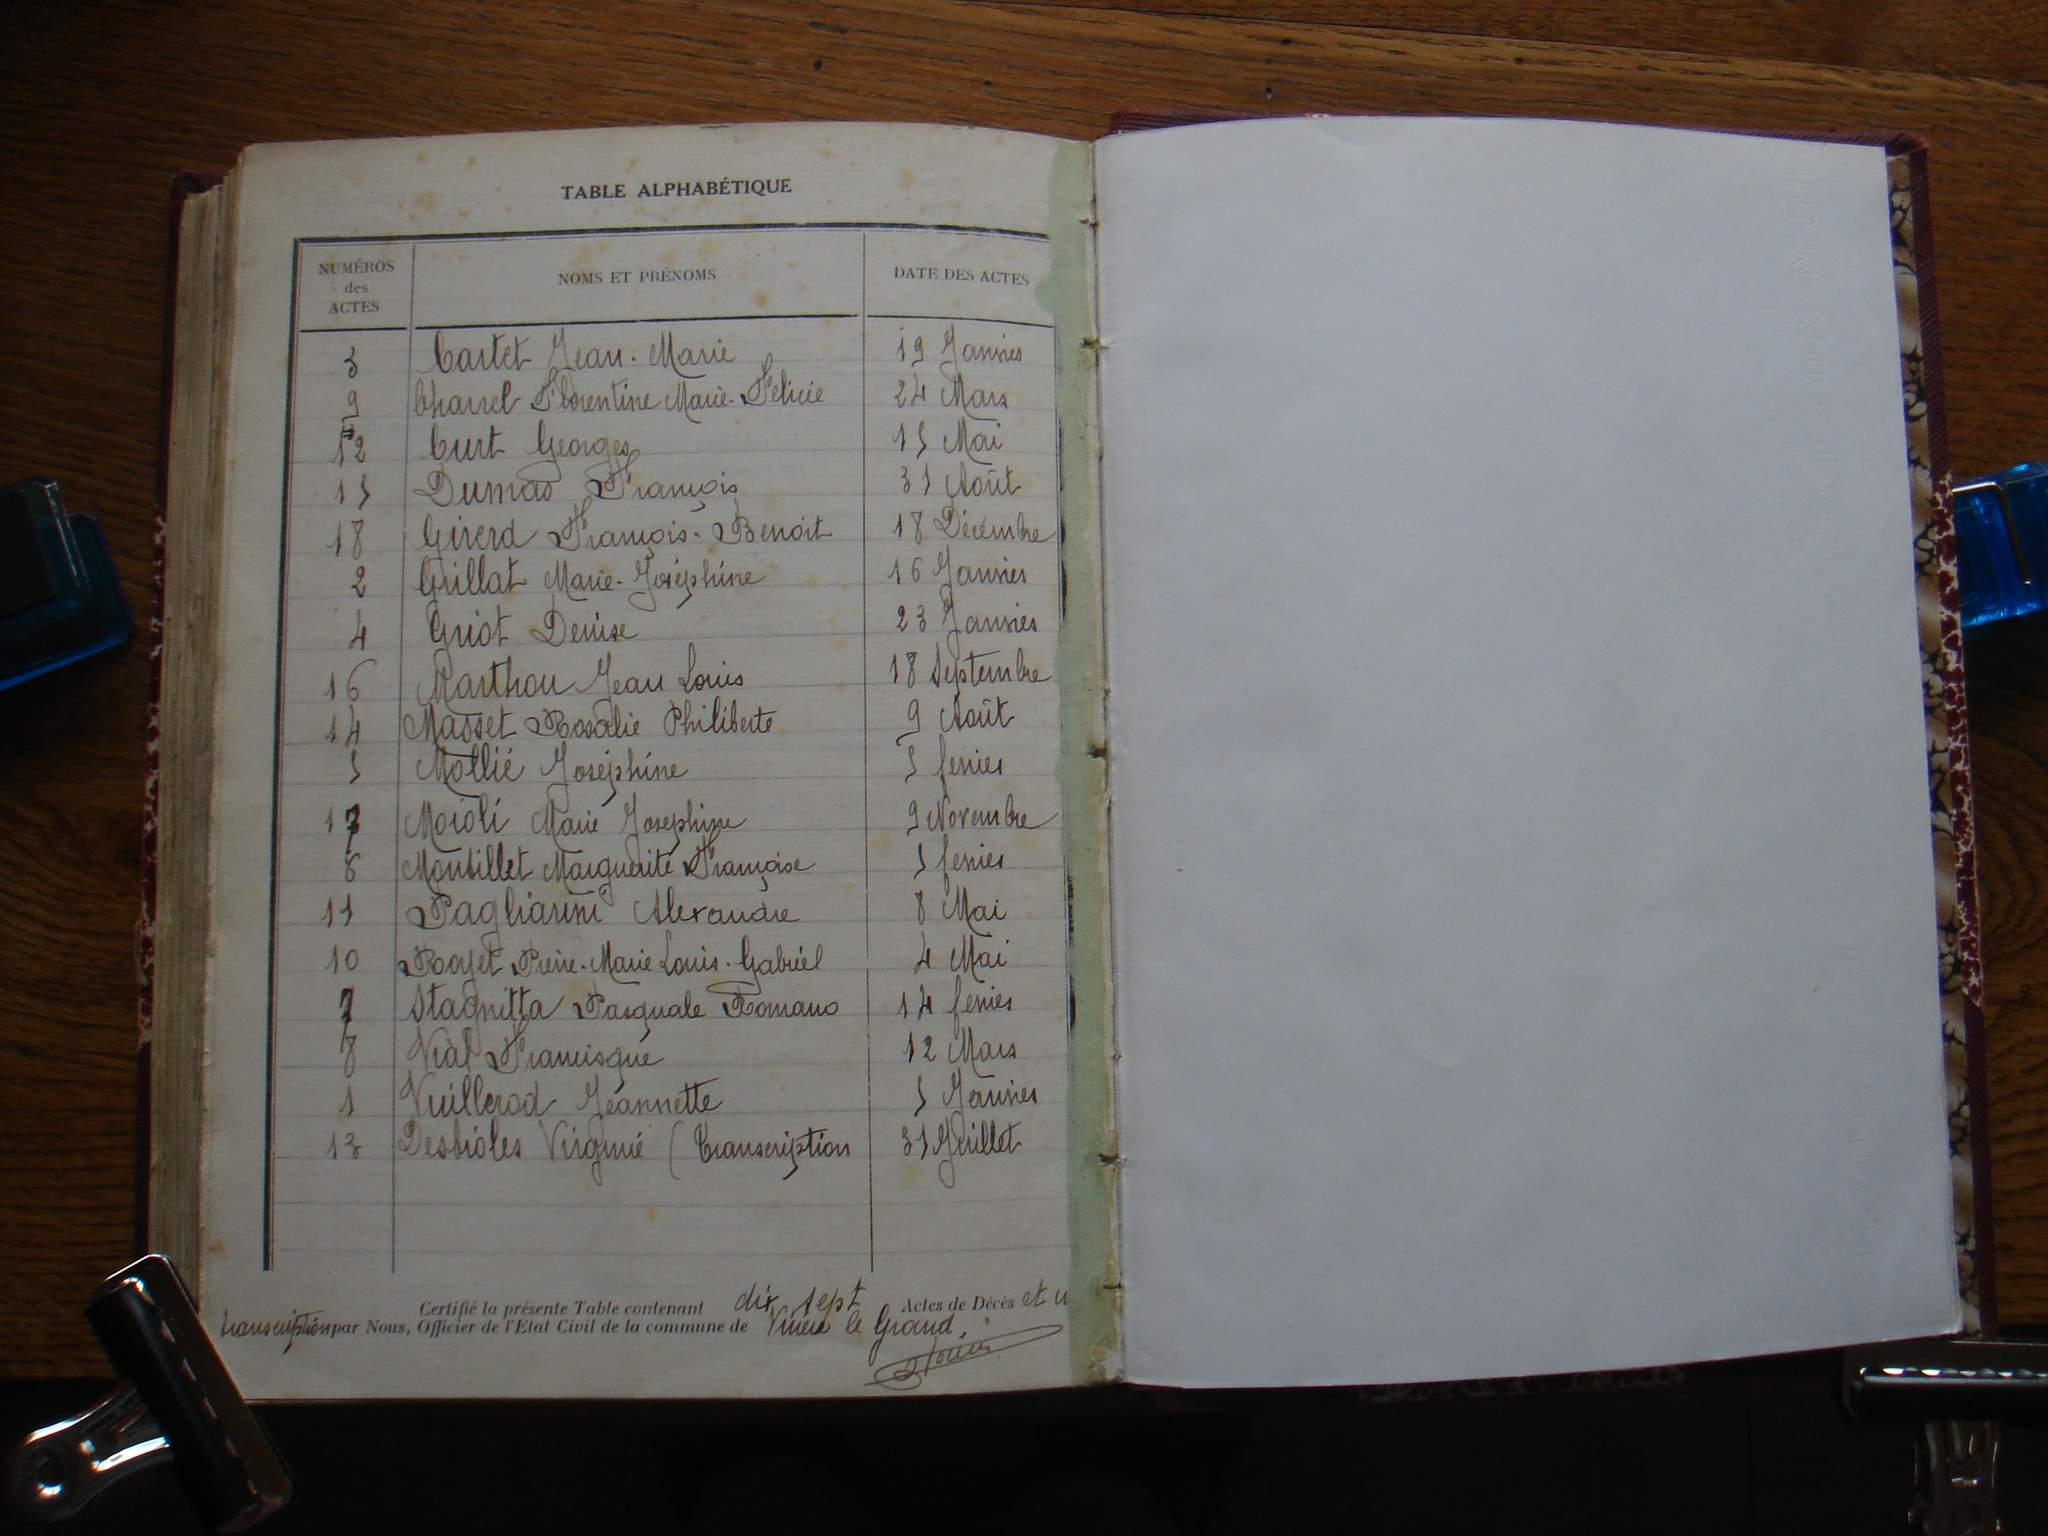 TABLE ALPHABÉTIQUE
NUMÉROS des ACTES NOMS ET PRÉNOMS DATE DES ACTES
3 Cartet Jean-Marie 19 Janvier
9 Charrel Florentine Marie-Félicie 24 Mars
12 Curt Georges 15 Mai
15 Dumas François 31 Août
18 Girerd François-Benoit 18 Décembre
2 Grillat Marie-Joséphine 16 Janvier
4 Griot Denise 23 Janvier
16 Marthou Jean Louis 18 Septembre
14 Masset Rosalie Philiberte 9 Août
5 Mollié Joséphine 5 fevrier
17 Moioli Marie Josephine 9 Novembre
6 Montillet Marguerite Françoise 5 fevrier
11 Pagliarini Alexandre 8 Mai
10 Royet Pierre-Marie Louis-Gabriel 4 Mai
7 Stagnitta Pasquale Romano 14 fevrier
8 Vial Francisque 12 Mars
1 Vuillerod Jeannette 5 Janvier
13 Desbioles Virginie (Transcription 31 Juillet
Certifié la présente Table contenant dix sept Actes de Décès et u
transcription par Nous, Officier de l'Etat Civil de la commune de Virieu le Grand.